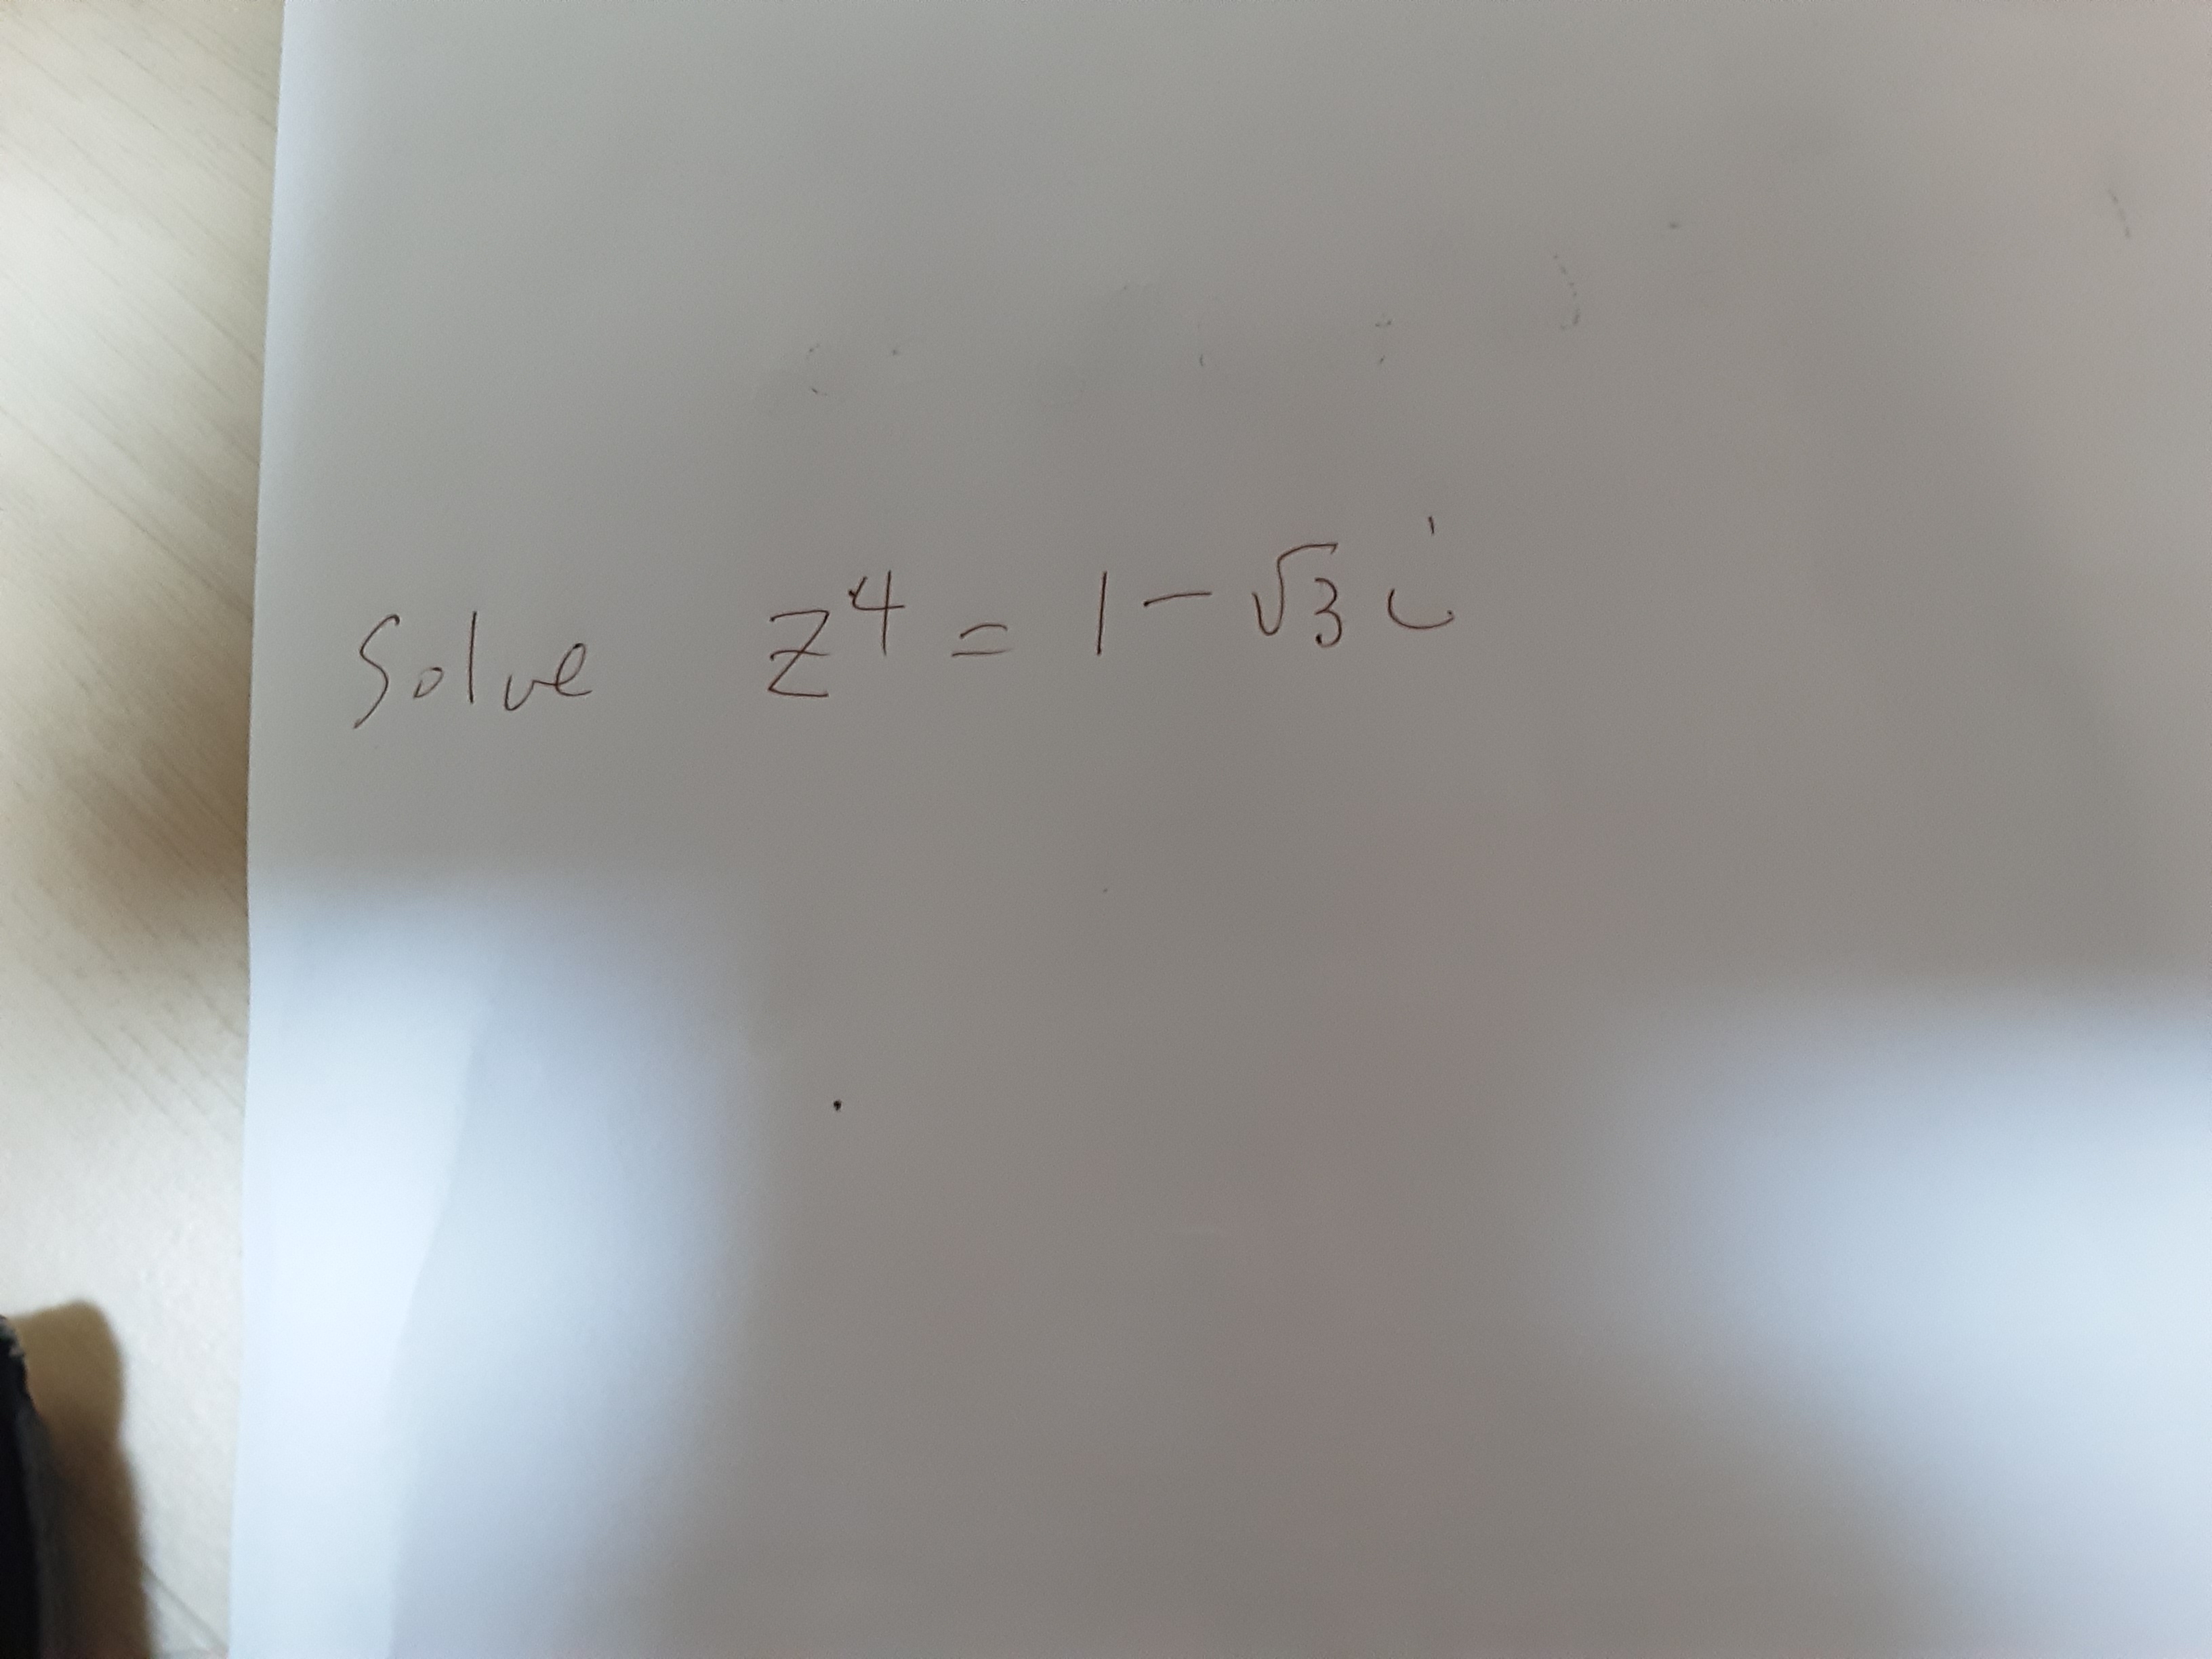 Solve z⁴ = 1 - √3 i